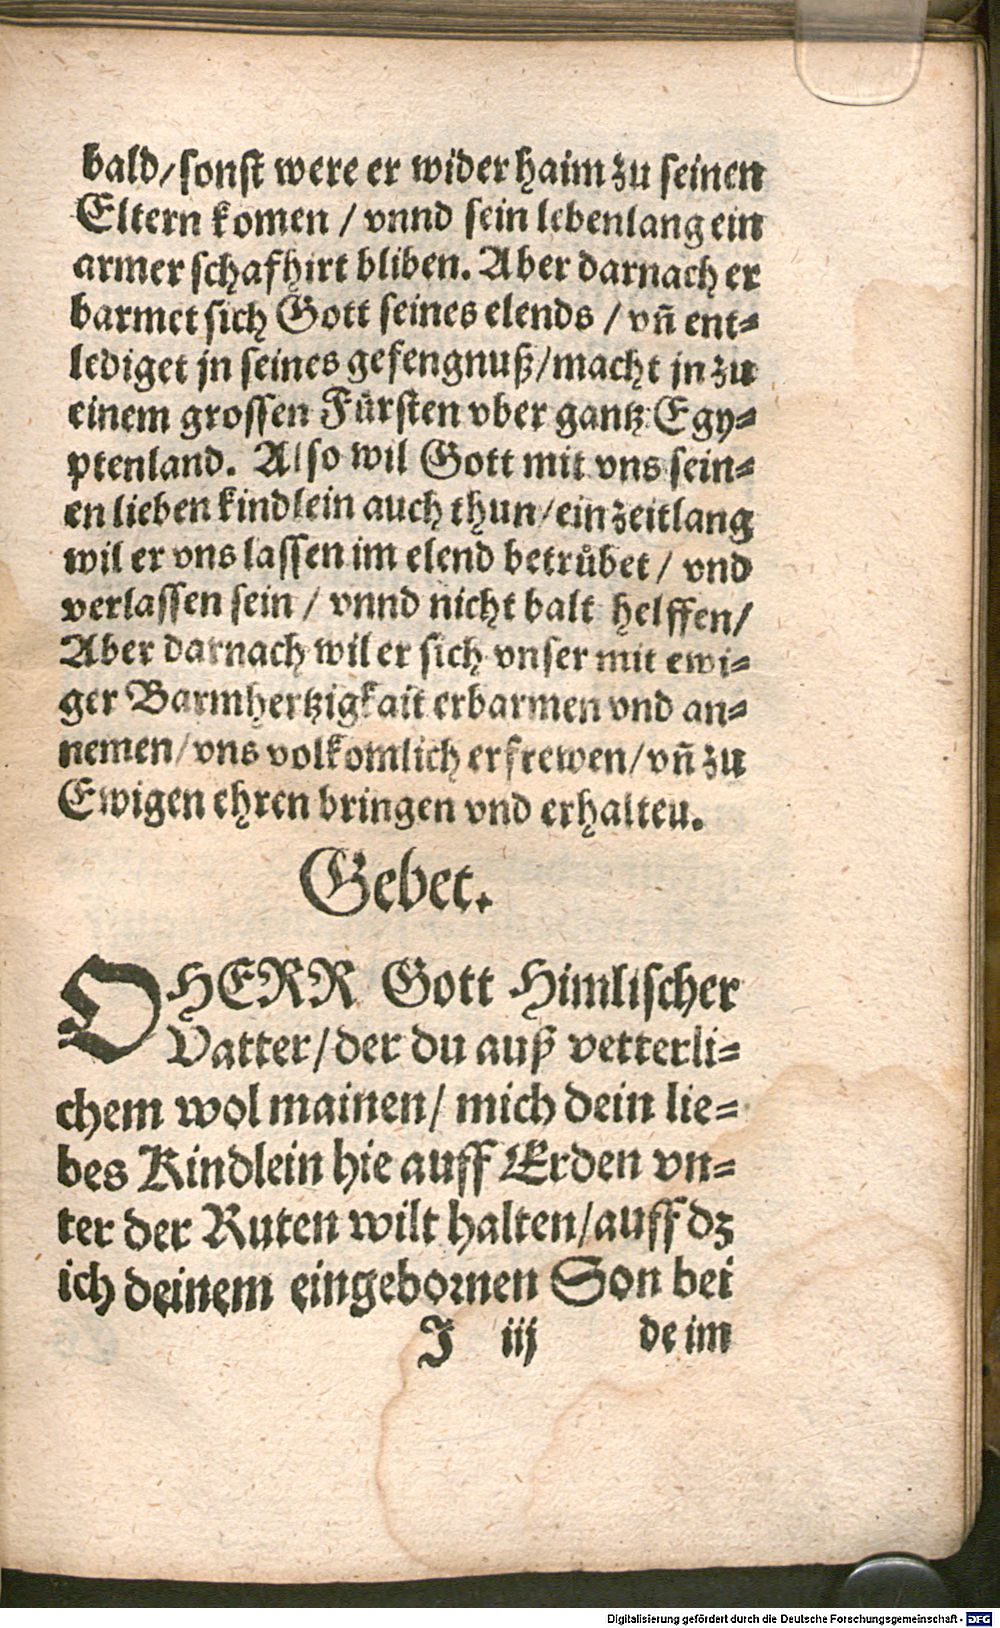 bald/sonst were er wider haim zu seinen
Eltern komen / vnnd sein lebenlang ein
armer schafhirt bliben. Aber darnach er
barmet sich Gott seines elends / vñ ent⸗
lediget jn seines gefengnuß/macht jn zu
einem grossen Fürsten vber gantz Egy⸗
ptenland. Also wil Gott mit vns sein⸗
en lieben kindlein auch thun/ein zeitlang
wil er vns lassen im elend betrůbet / vnd
verlassen sein / vnnd nicht balt helffen/
Aber darnach wil er sich vnser mit ewi⸗
ger Barmhertzigkait erbarmen vnd an⸗
nemen/vns volkomlich erfrewen/vñ zu
Ewigen ehren bringen vnd erhalten.
Gebet.
O HERR Gott Himlischer
Vatter/der du auß vetterli⸗
chem wol mainen/ mich dein lie⸗
bes Kindlein hie auff Erden vn⸗
ter der Ruten wilt halten/auff dz
ich deinem eingebornen Son bei
J iij de im
Digitalisierung gefördert durch die Deutsche Forschungsgemeinschaft - DFG